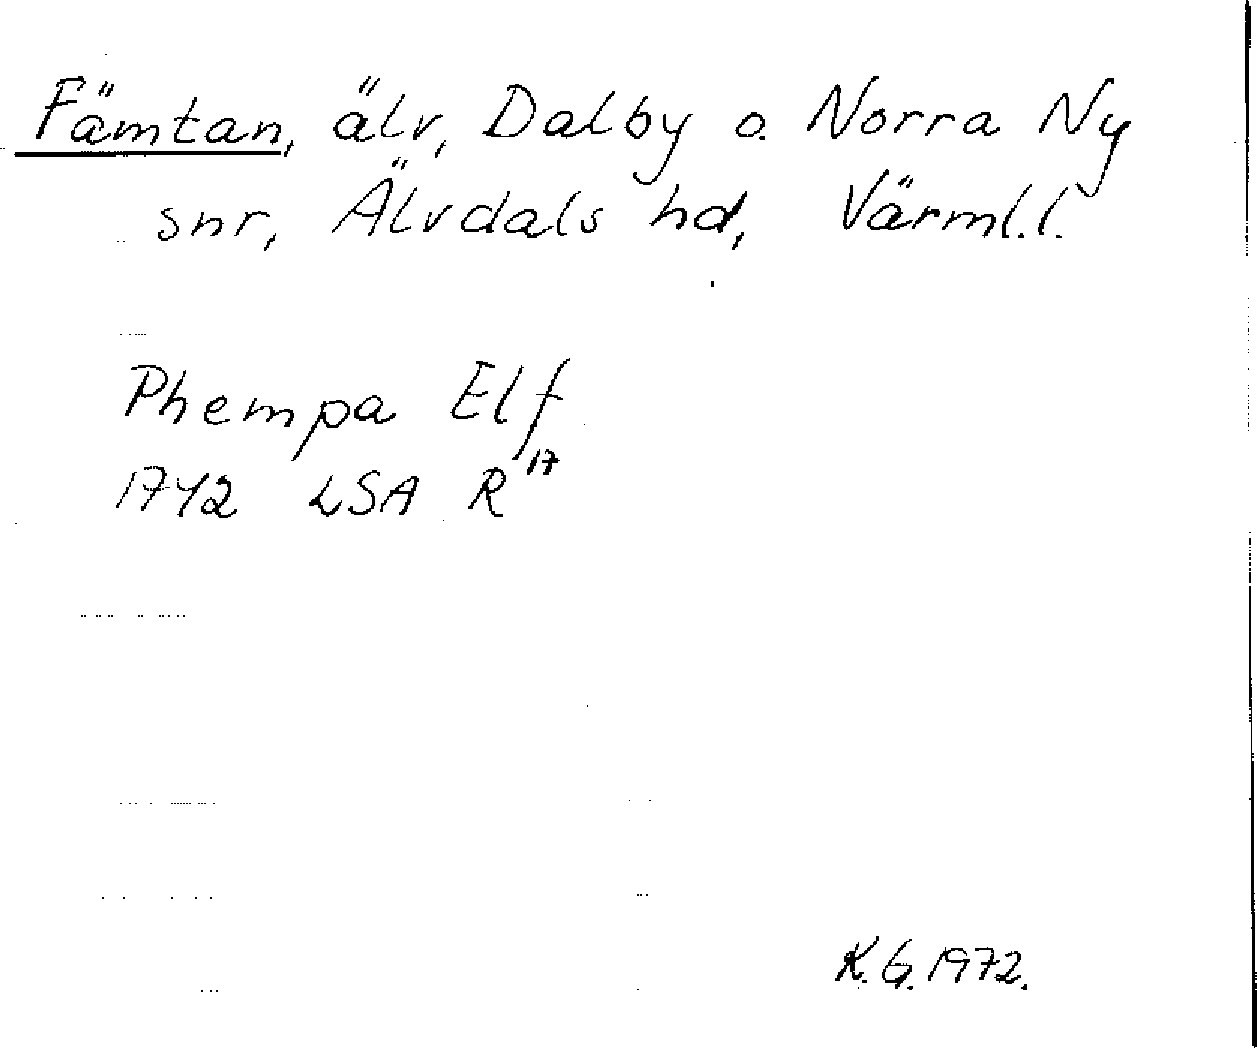 Fämtan, älv, Dalby o. Norra Ny
snr, Älvdals hd, Värml. l.
Phempa Elf
1742 LSA R17
K. G. 1972.